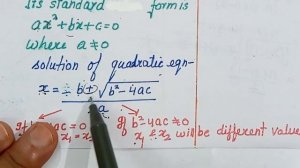 Its standard form is
ax²+bx+c=0
where a≠0
solution of quadratic eqn-
x = - b ± √b²-4ac
a
If b²-4ac = 0 If b²-4ac ≠ 0
x₁ = x₂ x₁ & x₂ will be different value